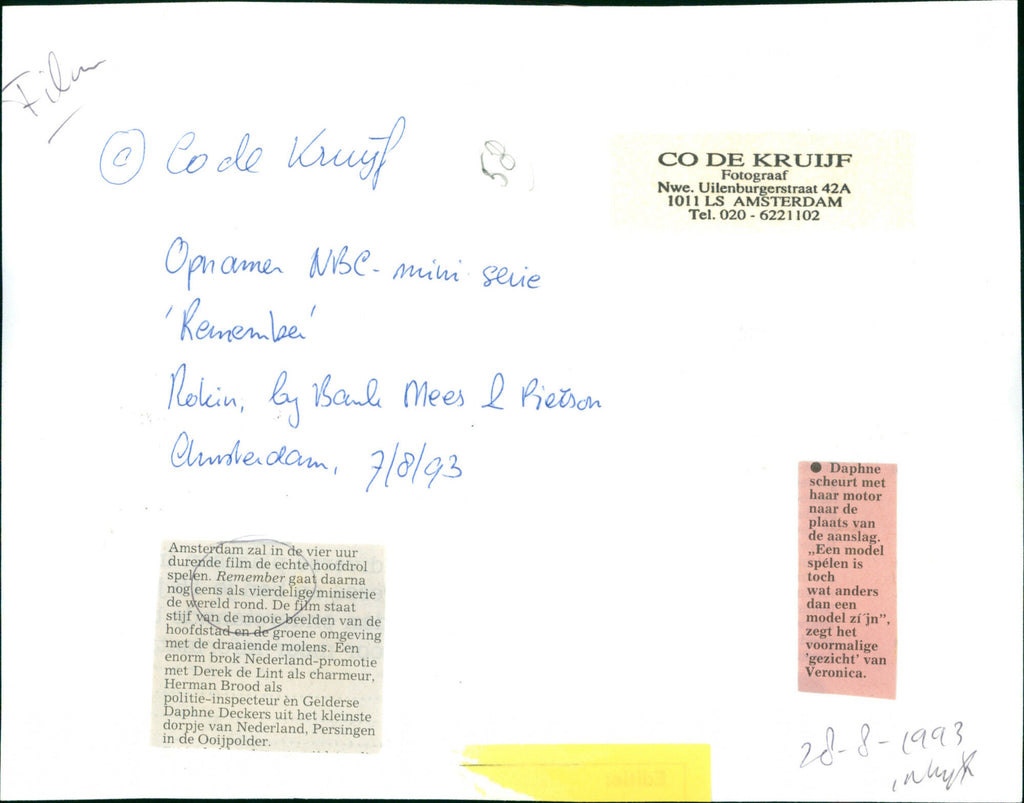 Film
© Co de Kruijf
58
CO DE KRUIJF
Fotograaf
Nwe. Uilenburgerstraat 42A
1011 LS AMSTERDAM
Tel. 020 - 6221102
Opnamen NBC-mini serie
'Remember'
Rokin, by Bank Mees & Pierson
Amsterdam, 7/8/93
Amsterdam zal in de vier uur
durende film de echte hoofdrol
spelen. Remember gaat daarna
nog eens als vierdelige miniserie
de wereld rond. De film staat
stijf van de mooie beelden van de
hoofdstad en de groene omgeving
met de draaiende molens. Een
enorm brok Nederland-promotie
met Derek de Lint als charmeur,
Herman Brood als
politie-inspecteur èn Gelderse
Daphne Deckers uit het kleinste
dorpje van Nederland, Persingen
in de Ooijpolder.
● Daphne
scheurt met
haar motor
naar de
plaats van
de aanslag.
„Een model
spélen is
toch
wat anders
dan een
model zí´jn”,
zegt het
voormalige
'gezicht' van
Veronica.
28-8-1993